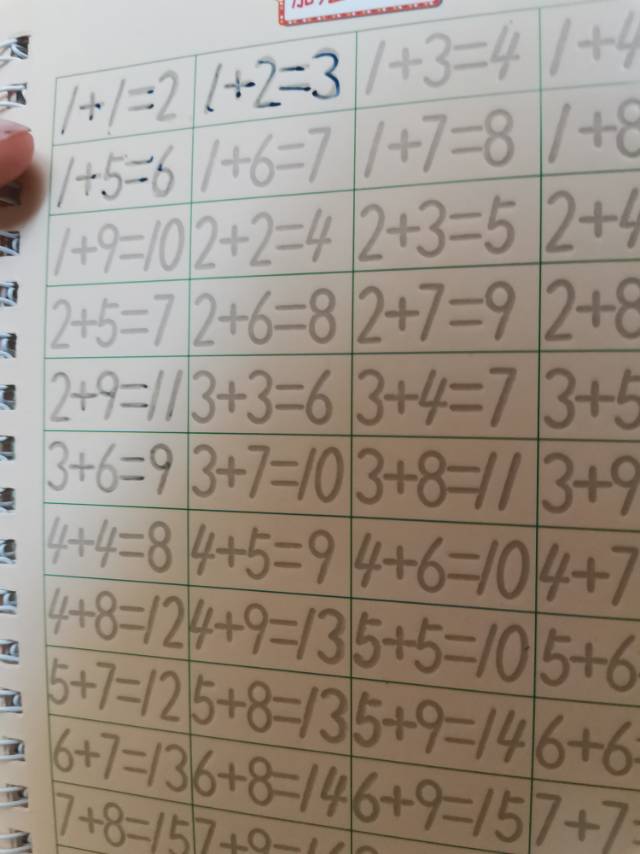 1+1=2 1+2=3 1+3=4 1+4
1+5=6 1+6=7 1+7=8 1+8
1+9=10 2+2=4 2+3=5 2+4
2+5=7 2+6=8 2+7=9 2+8
2+9=11 3+3=6 3+4=7 3+5
3+6=9 3+7=10 3+8=11 3+9
4+4=8 4+5=9 4+6=10 4+7
4+8=12 4+9=13 5+5=10 5+6
5+7=12 5+8=13 5+9=14 6+6=
6+7=13 6+8=14 6+9=15 7+7=
7+8=15 7+9=16